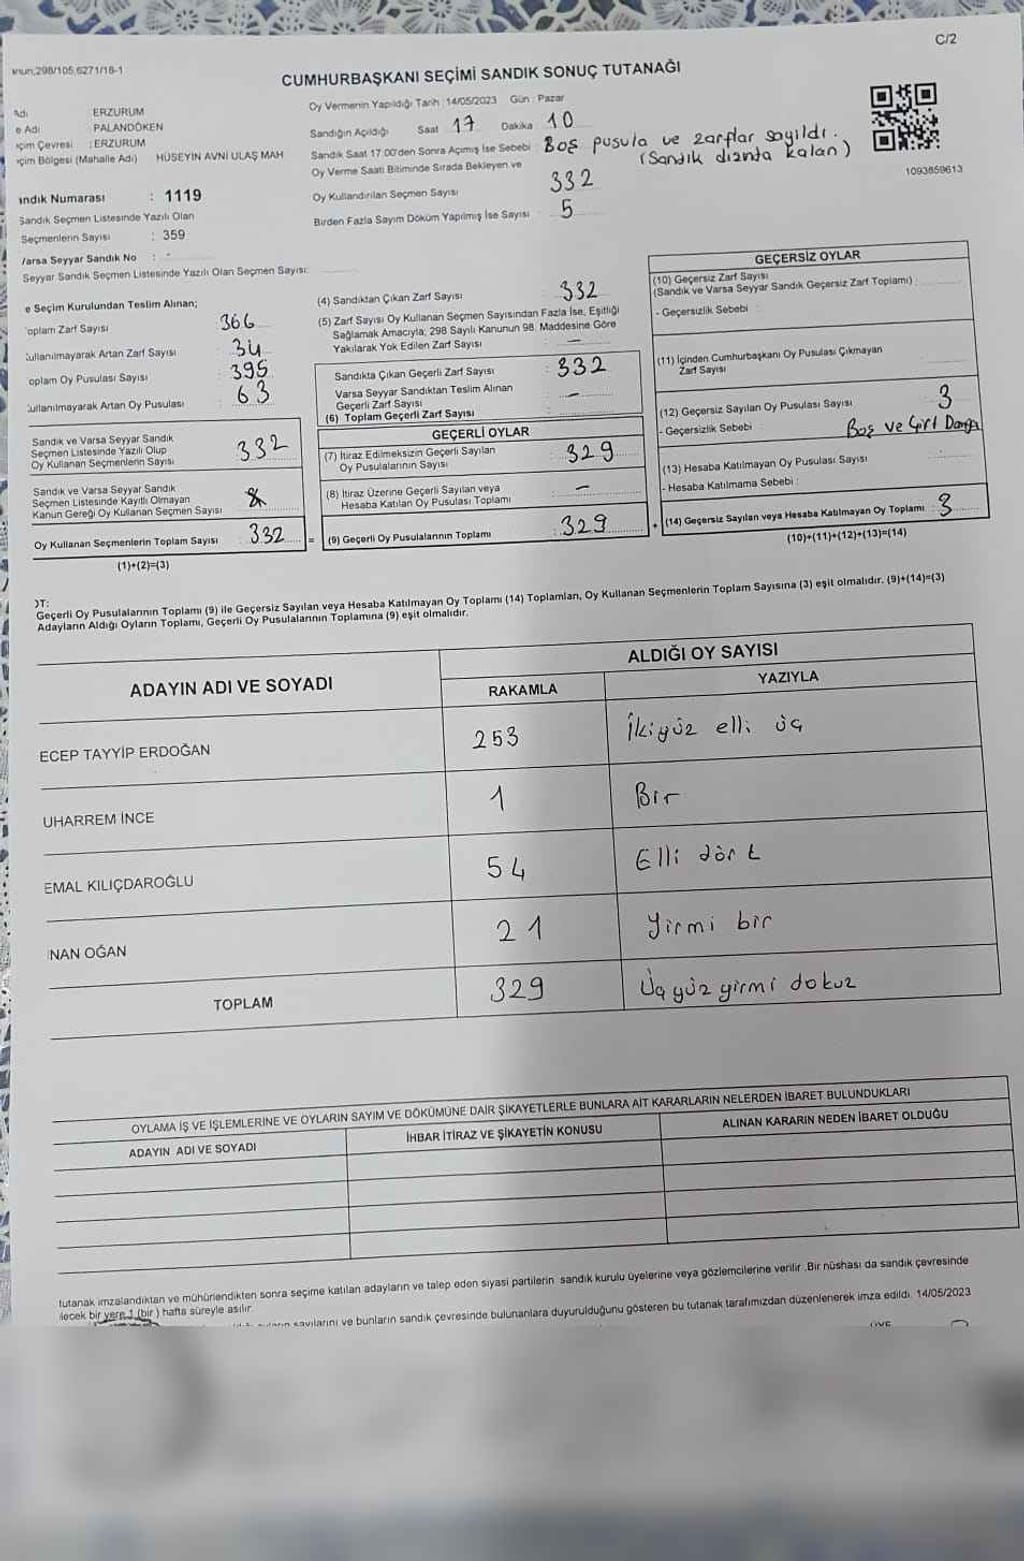 C/2
298/105,6271/18-1
CUMHURBAŞKANI SEÇİMİ SANDIK SONUÇ TUTANAĞI
Adı ERZURUM
e Adı PALANDÖKEN
çim Çevresi : ERZURUM
çim Bölgesi (Mahalle Adı) HÜSEYİN AVNİ ULAŞ MAH
Oy Vermenin Yapıldığı Tarih : 14/05/2023 Gün : Pazar
Sandığın Açıldığı Saat 17 Dakika 10
Sandık Saat 17:00'den Sonra Açımış İse Sebebi Boş pusula ve zarflar sayıldı.
(Sandık dışında kalan)
Oy Verme Saati Bitiminde Sırada Bekleyen ve
Oy Kullandırılan Seçmen Sayısı 332
Birden Fazla Sayım Döküm Yapılmış İse Sayısı 5
1093859613
ındık Numarası : 1119
Sandık Seçmen Listesinde Yazılı Olan
Seçmenlerin Sayısı : 359
Varsa Seyyar Sandık No : -
Seyyar Sandık Seçmen Listesinde Yazılı Olan Seçmen Sayısı:
e Seçim Kurulundan Teslim Alınan;
oplam Zarf Sayısı 366
ullanılmayarak Artan Zarf Sayısı 34
oplam Oy Pusulası Sayısı 395
ullanılmayarak Artan Oy Pusulası 63
Sandık ve Varsa Seyyar Sandık
Seçmen Listesinde Yazılı Olup
Oy Kullanan Seçmenlerin Sayısı 332
Sandık ve Varsa Seyyar Sandık
Seçmen Listesinde Kayıtlı Olmayan
Kanun Gereği Oy Kullanan Seçmen Sayısı
Oy Kullanan Seçmenlerin Toplam Sayısı 332 =
(1)+(2)=(3)
(4) Sandıktan Çıkan Zarf Sayısı 332
(5) Zarf Sayısı Oy Kullanan Seçmen Sayısından Fazla İse, Eşitliği
Sağlamak Amacıyla, 298 Sayılı Kanunun 98. Maddesine Göre
Yakılarak Yok Edilen Zarf Sayısı —
Sandıkta Çıkan Geçerli Zarf Sayısı : 332
Varsa Seyyar Sandıktan Teslim Alınan
Geçerli Zarf Sayısı : —
(6) Toplam Geçerli Zarf Sayısı
GEÇERLİ OYLAR
(7) İtiraz Edilmeksizin Geçerli Sayılan
Oy Pusulalarının Sayısı : 329
(8) İtiraz Üzerine Geçerli Sayılan veya
Hesaba Katılan Oy Pusulası Toplamı : —
(9) Geçerli Oy Pusulalarının Toplamı : 329 +
GEÇERSİZ OYLAR
(10) Geçersiz Zarf Sayısı
(Sandık ve Varsa Seyyar Sandık Geçersiz Zarf Toplamı) :
- Geçersizlik Sebebi :
(11) İçinden Cumhurbaşkanı Oy Pusulası Çıkmayan
Zarf Sayısı
(12) Geçersiz Sayılan Oy Pusulası Sayısı 3
- Geçersizlik Sebebi : Boş ve Çift Damga
(13) Hesaba Katılmayan Oy Pusulası Sayısı
- Hesaba Katılmama Sebebi :
(14) Geçersiz Sayılan veya Hesaba Katılmayan Oy Toplamı : 3
(10)+(11)+(12)+(13)=(14)
OT:
Geçerli Oy Pusulalarının Toplamı (9) ile Geçersiz Sayılan veya Hesaba Katılmayan Oy Toplamı (14) Toplamları, Oy Kullanan Seçmenlerin Toplam Sayısına (3) eşit olmalıdır. (9)+(14)=(3)
Adayların Aldığı Oyların Toplamı, Geçerli Oy Pusulalarının Toplamına (9) eşit olmalıdır.
ADAYIN ADI VE SOYADI
ALDIĞI OY SAYISI
RAKAMLA YAZIYLA
ECEP TAYYİP ERDOĞAN 253 İkiyüz elli üç
UHARREM İNCE 1 Bir
EMAL KILIÇDAROĞLU 54 Elli dört
İNAN OĞAN 21 Yirmi bir
TOPLAM 329 Üçyüz yirmi dokuz
OYLAMA İŞ VE İŞLEMLERİNE VE OYLARIN SAYIM VE DÖKÜMÜNE DAİR ŞİKAYETLERLE BUNLARA AİT KARARLARIN NELERDEN İBARET BULUNDUKLARI
ADAYIN ADI VE SOYADI İHBAR İTİRAZ VE ŞİKAYETİN KONUSU ALINAN KARARIN NEDEN İBARET OLDUĞU
tutanak imzalandıktan ve mühürlendikten sonra seçime katılan adayların ve talep eden siyasi partilerin sandık kurulu üyelerine veya gözlemcilerine verilir .Bir nüshası da sandık çevresinde
ilecek bir yere 1 (bir ) hafta süreyle asılır.
sayılarını ve bunların sandık çevresinde bulunanlara duyurulduğunu gösteren bu tutanak tarafımızdan düzenlenerek imza edildi. 14/05/2023
ÜYE